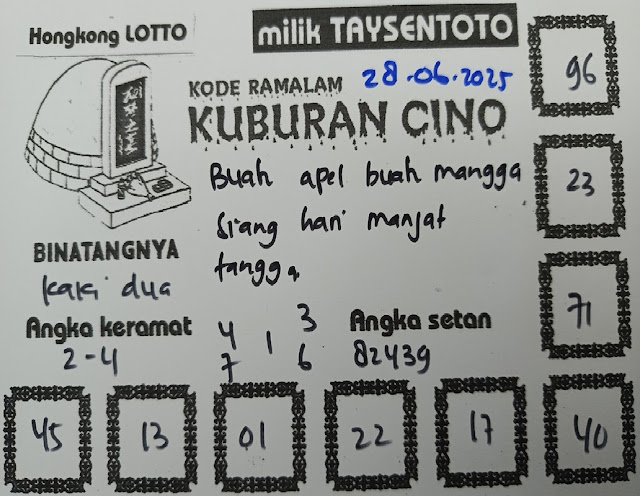 Hongkong LOTTO
milik TAYSENTOTO
KODE RAMALAM
28.06.2025
KUBURAN CINO
Buah apel buah mangga
siang hari manjat
tangga
BINATANGNYA
kaki dua
Angka keramat
2-4
4 3
1
7 6
Angka setan
82439
96
23
71
45 13 01 22 17 40